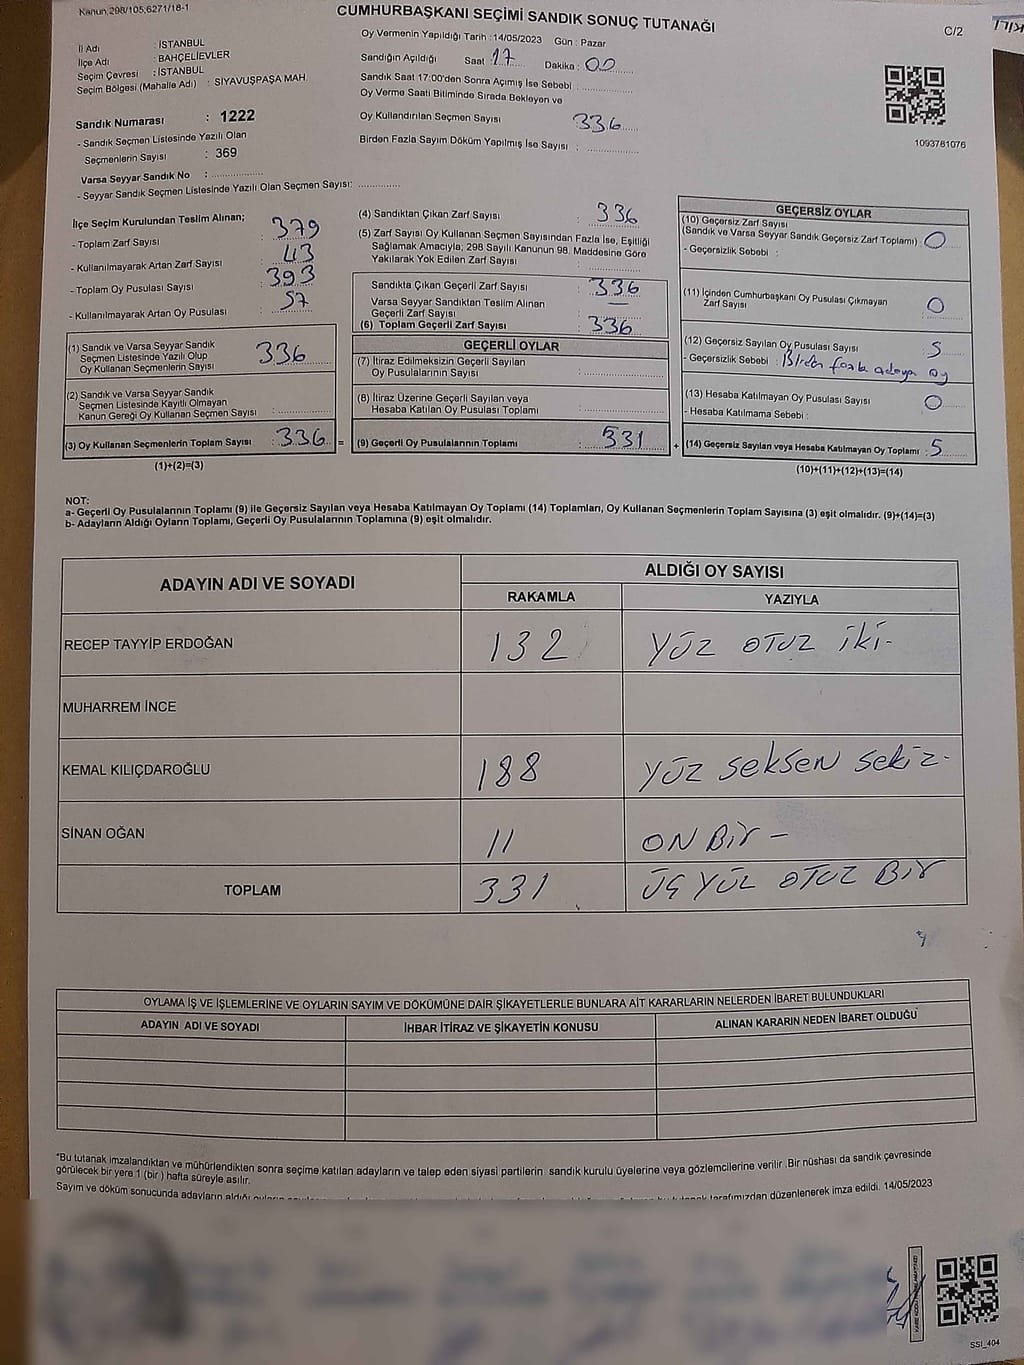 Kanun 298/105,6271/18-1
CUMHURBAŞKANI SEÇİMİ SANDIK SONUÇ TUTANAĞI
C/2
İl Adı : İSTANBUL
İlçe Adı : BAHÇELİEVLER
Seçim Çevresi : İSTANBUL
Seçim Bölgesi (Mahalle Adı) : SİYAVUŞPAŞA MAH.
Sandık Numarası : 1222
- Sandık Seçmen Listesinde Yazılı Olan
Seçmenlerin Sayısı : 369
Varsa Seyyar Sandık No : ....................
- Seyyar Sandık Seçmen Listesinde Yazılı Olan Seçmen Sayısı: ............
Oy Vermenin Yapıldığı Tarih :14/05/2023 Gün : Pazar
Sandığın Açıldığı Saat 17 Dakika : 00
Sandık Saat 17:00'den Sonra Açımış İse Sebebi :
Oy Verme Saati Bitiminde Sırada Bekleyen ve
Oy Kullandırılan Seçmen Sayısı 336
Birden Fazla Sayım Döküm Yapılmış İse Sayısı :
1093781076
İlçe Seçim Kurulundan Teslim Alınan;
- Toplam Zarf Sayısı : 379
- Kullanılmayarak Artan Zarf Sayısı : 43
- Toplam Oy Pusulası Sayısı : 393
- Kullanılmayarak Artan Oy Pusulası : 57
(1) Sandık ve Varsa Seyyar Sandık
Seçmen Listesinde Yazılı Olup
Oy Kullanan Seçmenlerin Sayısı 336
(2) Sandık ve Varsa Seyyar Sandık
Seçmen Listesinde Kayıtlı Olmayan
Kanun Gereği Oy Kullanan Seçmen Sayısı :
(3) Oy Kullanan Seçmenlerin Toplam Sayısı : 336 =
(1)+(2)=(3)
(4) Sandıktan Çıkan Zarf Sayısı : 336
(5) Zarf Sayısı Oy Kullanan Seçmen Sayısından Fazla İse, Eşitliği
Sağlamak Amacıyla; 298 Sayılı Kanunun 98. Maddesine Göre
Yakılarak Yok Edilen Zarf Sayısı :
Sandıkta Çıkan Geçerli Zarf Sayısı : 336
Varsa Seyyar Sandıktan Teslim Alınan
Geçerli Zarf Sayısı : —
(6) Toplam Geçerli Zarf Sayısı : 336
GEÇERLİ OYLAR
(7) İtiraz Edilmeksizin Geçerli Sayılan
Oy Pusulalarının Sayısı :
(8) İtiraz Üzerine Geçerli Sayılan veya
Hesaba Katılan Oy Pusulası Toplamı :
(9) Geçerli Oy Pusulalarının Toplamı : 331 +
GEÇERSİZ OYLAR
(10) Geçersiz Zarf Sayısı
(Sandık ve Varsa Seyyar Sandık Geçersiz Zarf Toplamı) : 0
- Geçersizlik Sebebi :
(11) İçinden Cumhurbaşkanı Oy Pusulası Çıkmayan
Zarf Sayısı : 0
(12) Geçersiz Sayılan Oy Pusulası Sayısı : 5
- Geçersizlik Sebebi : Birden fazla adaya oy
(13) Hesaba Katılmayan Oy Pusulası Sayısı : 0
- Hesaba Katılmama Sebebi :
(14) Geçersiz Sayılan veya Hesaba Katılmayan Oy Toplamı : 5
(10)+(11)+(12)+(13)=(14)
NOT:
a- Geçerli Oy Pusulalarının Toplamı (9) ile Geçersiz Sayılan veya Hesaba Katılmayan Oy Toplamı (14) Toplamları, Oy Kullanan Seçmenlerin Toplam Sayısına (3) eşit olmalıdır. (9)+(14)=(3)
b- Adayların Aldığı Oyların Toplamı, Geçerli Oy Pusulalarının Toplamına (9) eşit olmalıdır.
ADAYIN ADI VE SOYADI
ALDIĞI OY SAYISI
RAKAMLA
YAZIYLA
RECEP TAYYİP ERDOĞAN 132 YÜZ OTUZ İKİ-
MUHARREM İNCE
KEMAL KILIÇDAROĞLU 188 YÜZ SEKSEN SEKİZ-
SİNAN OĞAN 11 ON BİR -
TOPLAM 331 ÜÇ YÜZ OTUZ BİR
OYLAMA İŞ VE İŞLEMLERİNE VE OYLARIN SAYIM VE DÖKÜMÜNE DAİR ŞİKAYETLERLE BUNLARA AİT KARARLARIN NELERDEN İBARET BULUNDUKLARI
ADAYIN ADI VE SOYADI
İHBAR İTİRAZ VE ŞİKAYETİN KONUSU
ALINAN KARARIN NEDEN İBARET OLDUĞU
*Bu tutanak imzalandıktan ve mühürlendikten sonra seçime katılan adayların ve talep eden siyasi partilerin sandık kurulu üyelerine veya gözlemcilerine verilir. Bir nüshası da sandık çevresinde
görülecek bir yere 1 (bir) hafta süreyle asılır.
Sayım ve döküm sonucunda adayların aldığı tarafımızdan düzenlenerek imza edildi. 14/05/2023
SSI_404